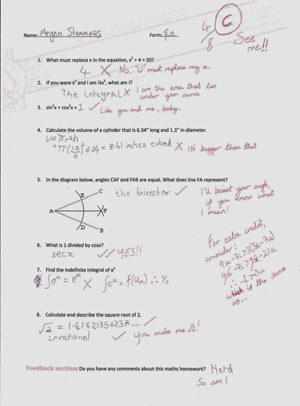 Name: Megan Stammers Form: Ea
4/8 C
See me!!
1. What must replace x in the equation, x² + 4 = 20?
4 X No. "U" must replace my x.
2. If you were x² and I am ⅓x³, what am I?
The integral X I am the area that lies under your curve
3. sin²x + cos²x = 1 ✓ Like you and me, baby.
4. Calculate the volume of a cylinder that is 6.34" long and 1.3" in diameter.
V=πr²h
=π(1.3/2)² 6.34 = 8.41 inches cubed X I'm bigger than that
5. In the diagram below, angles CAF and FAB are equal. What does line FA represent?
C
A F
B
the bisector ✓
I'll bisect your angle, if you know what I mean!
6. What is 1 divided by cosx?
sec x ✓ YES!!
7. Find the indefinite integral of eˣ
∫eˣ = eˣ X ∫eˣ = f(uₙ)
8. Calculate and describe the square root of 2.
√2 = 1.41421356237...
irrational ✓ You make me √2!
For extra credit, consider
which is the same as...
Feedback section: Do you have any comments about this maths homework? Hard
So am I